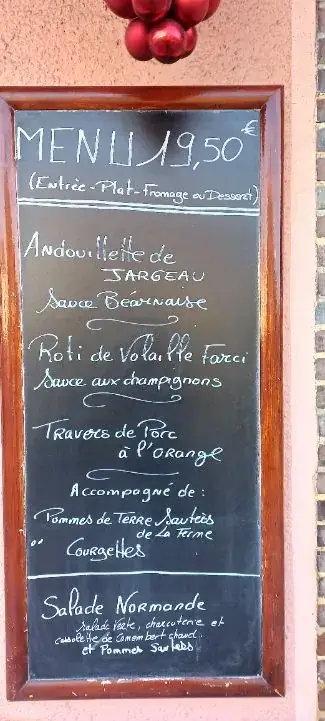 MENU 19,50€
(Entrée - Plat - Fromage ou Dessert)
Andouillette de
JARGEAU
Sauce Béarnaise
Roti de Volaille Farci
Sauce aux champignons
Travers de Porc
à l'orange
Accompagné de :
Pommes de Terre Sautées
de la Ferme
ou Courgettes
Salade Normande
Salade verte, charcuterie et
cassolette de Camembert chaud
et Pommes Sautées